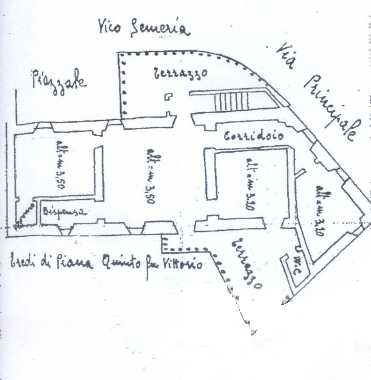 Vico Semeria
Via Principale
Piazzale
Terrazzo
Corridoio
alt = m 3,50
alt = m 3,50
alt = m 3,20
alt = m 3,20
Dispensa
W.C
Terrazzo
Eredi di Piana Quinto fu Vittorio